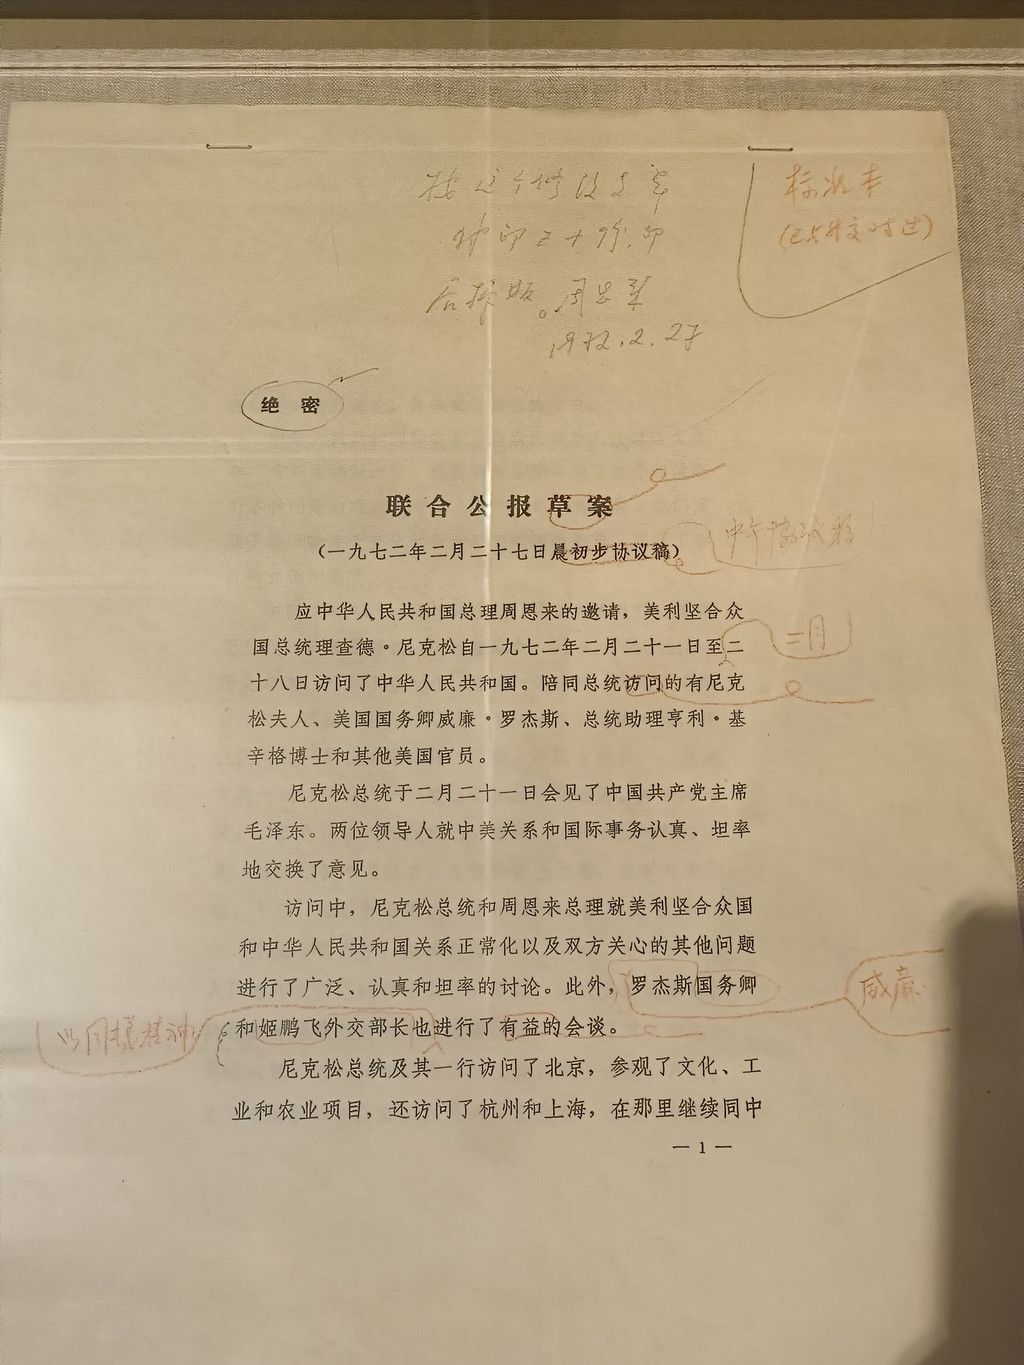 按这个修改定稿
付印三十份.印
后拆版。周恩来
1972.2.27
标准本
(已与外交对过)
绝 密
联合公报草案
(一九七二年二月二十七日晨初步协议稿)
中午协议稿
应中华人民共和国总理周恩来的邀请，美利坚合众
国总统理查德·尼克松自一九七二年二月二十一日至二
二月
十八日访问了中华人民共和国。陪同总统访问的有尼克
松夫人、美国国务卿威廉·罗杰斯、总统助理亨利·基
辛格博士和其他美国官员。
尼克松总统于二月二十一日会见了中国共产党主席
毛泽东。两位领导人就中美关系和国际事务认真、坦率
地交换了意见。
访问中，尼克松总统和周恩来总理就美利坚合众国
和中华人民共和国关系正常化以及双方关心的其他问题
进行了广泛、认真和坦率的讨论。此外，罗杰斯国务卿
威廉·
和姬鹏飞外交部长也进行了有益的会谈。
以同样精神
尼克松总统及其一行访问了北京，参观了文化、工
业和农业项目，还访问了杭州和上海，在那里继续同中
— 1 —